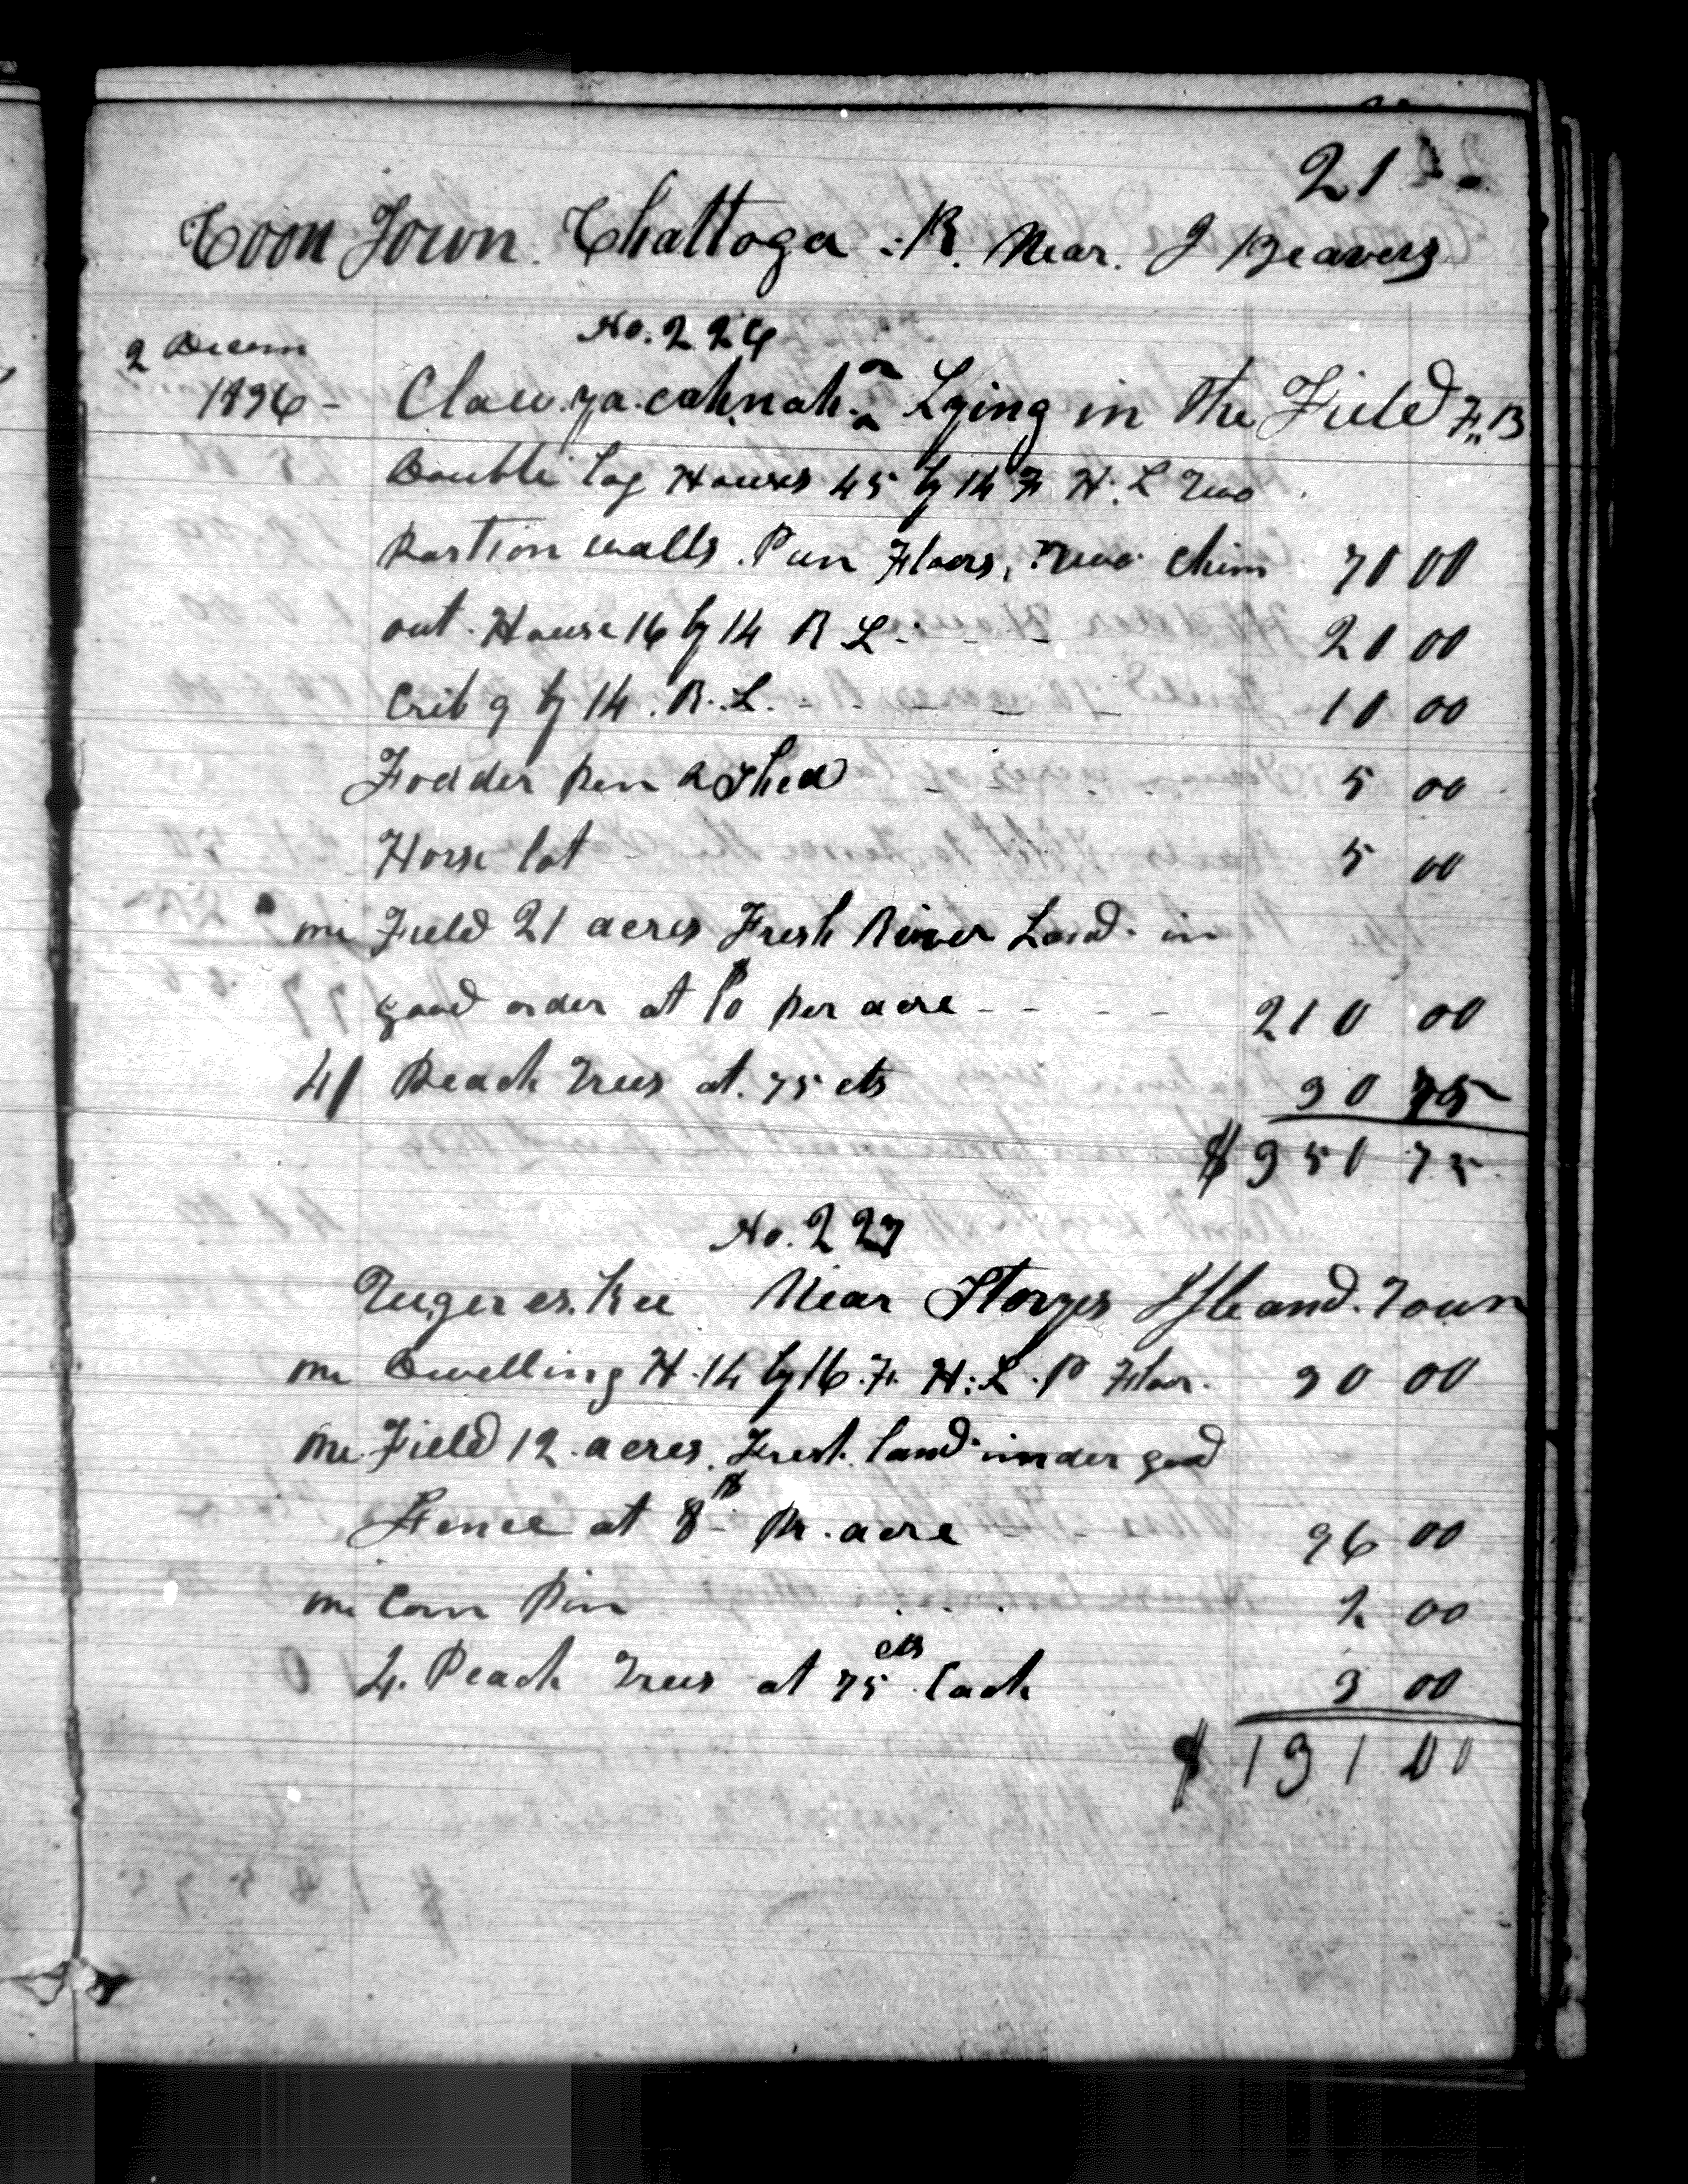 21
Coon Town. Chattoga R. Near. J Beavers
No. 226
2 Decem
1836 - Claw.ya.cah.nah. or Lying in the Field F. B
Double log Houses 45 by 14 F H. L Two
Partion walls. Pun Floors, Two chim 70 00
out House 16 by 14 R L - - - 20 00
Crib 9 by 14. R. L. - - - - 10 00
Fodder pen & Shed - - - - 5 00
Horse lot 5 00
me Field 21 acres Fresh River Land in
good order at $10 per acre - - - - 210 00
41 Peach Trees at. 75 cts 30 75
$350 75
No. 227
Near Island Town
me Dwelling H. 14 by 16. F. H. L. P Floor. 30 00
me Field 12 acres. Fresh land under good
Fence at 8$ Pr. acre - - 96 00
me Corn Pin . . . 2 00
4. Peach Trees at 75 cts Each 3 00
$131 00